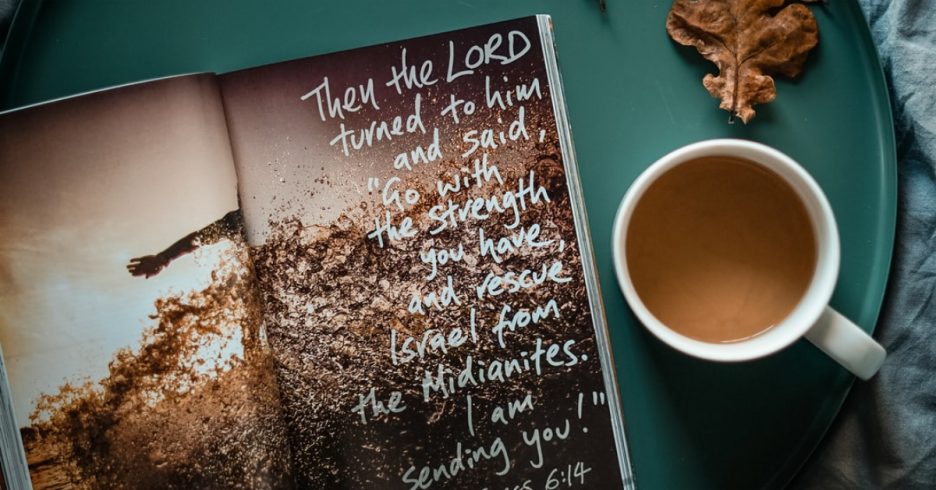 Then the LORD
turned to him
and said,
"Go with
the strength
you have,
and rescue
Israel from
the Midianites.
I am
sending you!"
6:14